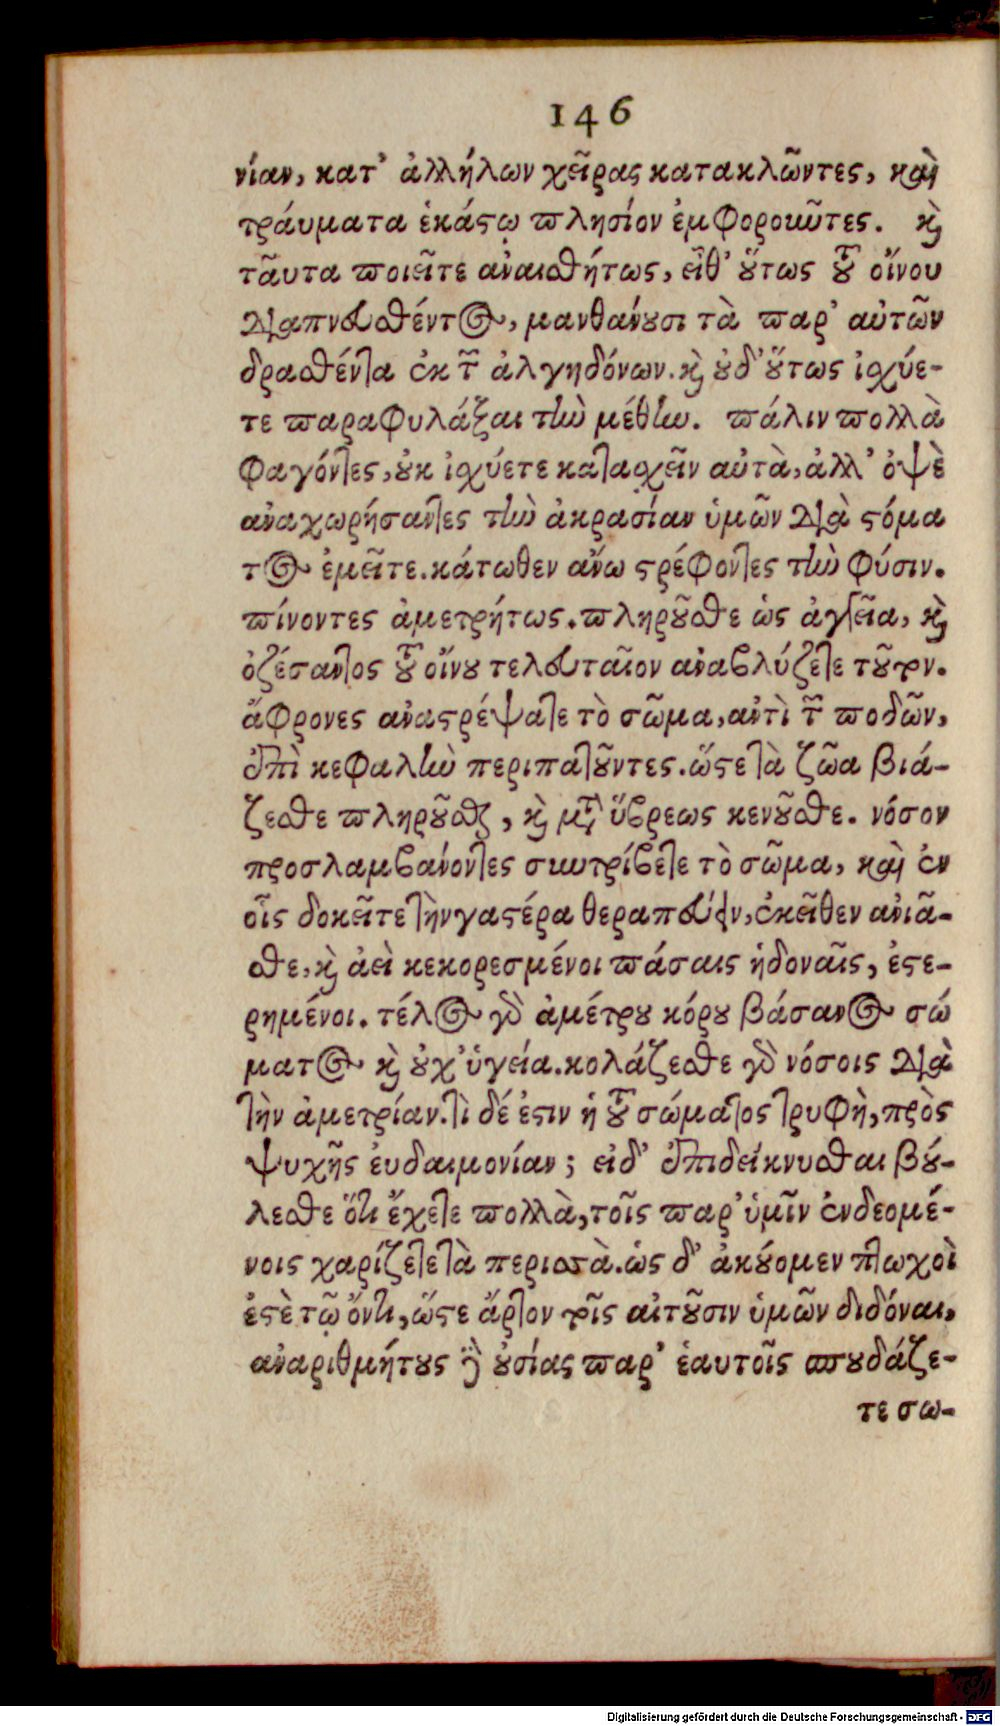 146
νίαν, κατ' ἀλλήλων χεῖρας κατακλῶντες, καὶ
τραύματα ἑκάστῳ πλησίον ἐμφοροιῶτες. καὶ
ταῦτα ποιεῖτε ἀναισθήτως, εἶθ' οὕτως τοῦ οἴνου
διαπνευσθέντος, μανθάνουσι τὰ παρ' αὐτῶν
δρασθέντα ἐκ τῶν ἀλγηδόνων. καὶ οὐδ' οὕτως ἰσχύε-
τε παραφυλάξαι τὴν μέθην. πάλιν πολλὰ
φαγόντες, οὐκ ἰσχύετε κατασχεῖν αὐτὰ, ἀλλ' ὀψὲ
ἀναχωρήσαντες τὴν ἀκρασίαν ὑμῶν διὰ στόμα
τος ἐμεῖτε. κάτωθεν ἄνω στρέφοντες τὴν φύσιν.
πίνοντες ἀμετρήτως. πληροῦσθε ὡς ἀγγεῖα, καὶ
ὀζέσαντος τοῦ οἴνου τελευταῖον ἀναβλύζετε τοῦτον.
ἄφρονες ἀναστρέψατε τὸ σῶμα, ἀντὶ τῶν ποδῶν,
ἐπὶ κεφαλὴν περιπατοῦντες. ὥστε τὰ ζῶα βιά-
ζεσθε πληροῦσθαι, καὶ μετὰ ὕβρεως κενοῦσθε. νόσον
προσλαμβάνοντες συντρίβετε τὸ σῶμα, καὶ ἐν
οἷς δοκεῖτε τὴν γαστέρα θεραπεύειν, ἐκεῖθεν ἀνιᾶ-
σθε, καὶ ἀεὶ κεκορεσμένοι πάσαις ἡδοναῖς, ἐστε-
ρημένοι. τέλος γὰρ ἀμέτρου κόρου βάσανος σώ
ματος καὶ οὐχ' ὑγεία. κολάζεσθε γὰρ νόσοις διὰ
τὴν ἀμετρίαν. τί δέ ἐστιν ἡ τοῦ σώματος τρυφὴ, πρὸς
ψυχῆς ἐυδαιμονίαν; εἰδ' ἐπιδείκνυσθαι βού-
λεσθε ὅτι ἔχετε πολλὰ, τοῖς παρ' ὑμῖν ἐνδεομέ-
νοις χαρίζετε τὰ περισσὰ. ὡς δ' ἀκούομεν πτωχοὶ
ἐστὲ τῷ ὄντι, ὥστε ἄρτον τοῖς αἰτοῦσιν ὑμῶν διδόναι,
ἀναριθμήτους δὲ οὐσίας παρ' ἑαυτοῖς σπουδάζε-
τε σω-
Digitalisierung gefördert durch die Deutsche Forschungsgemeinschaft - DFG